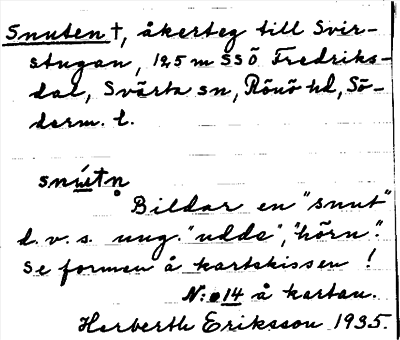 Snuten †, åkerteg till Svir-
stugan, 125 m SSÖ Fredriks-
dal, Svärta sn, Rönö hd, Sö-
derm. l.
snútn̥
Bildar en "snut"
d.v.s. ung. "udde", "hörn".
Se formen å kartskissen!
N:o 14 å kartan.
Herberth Eriksson 1935.